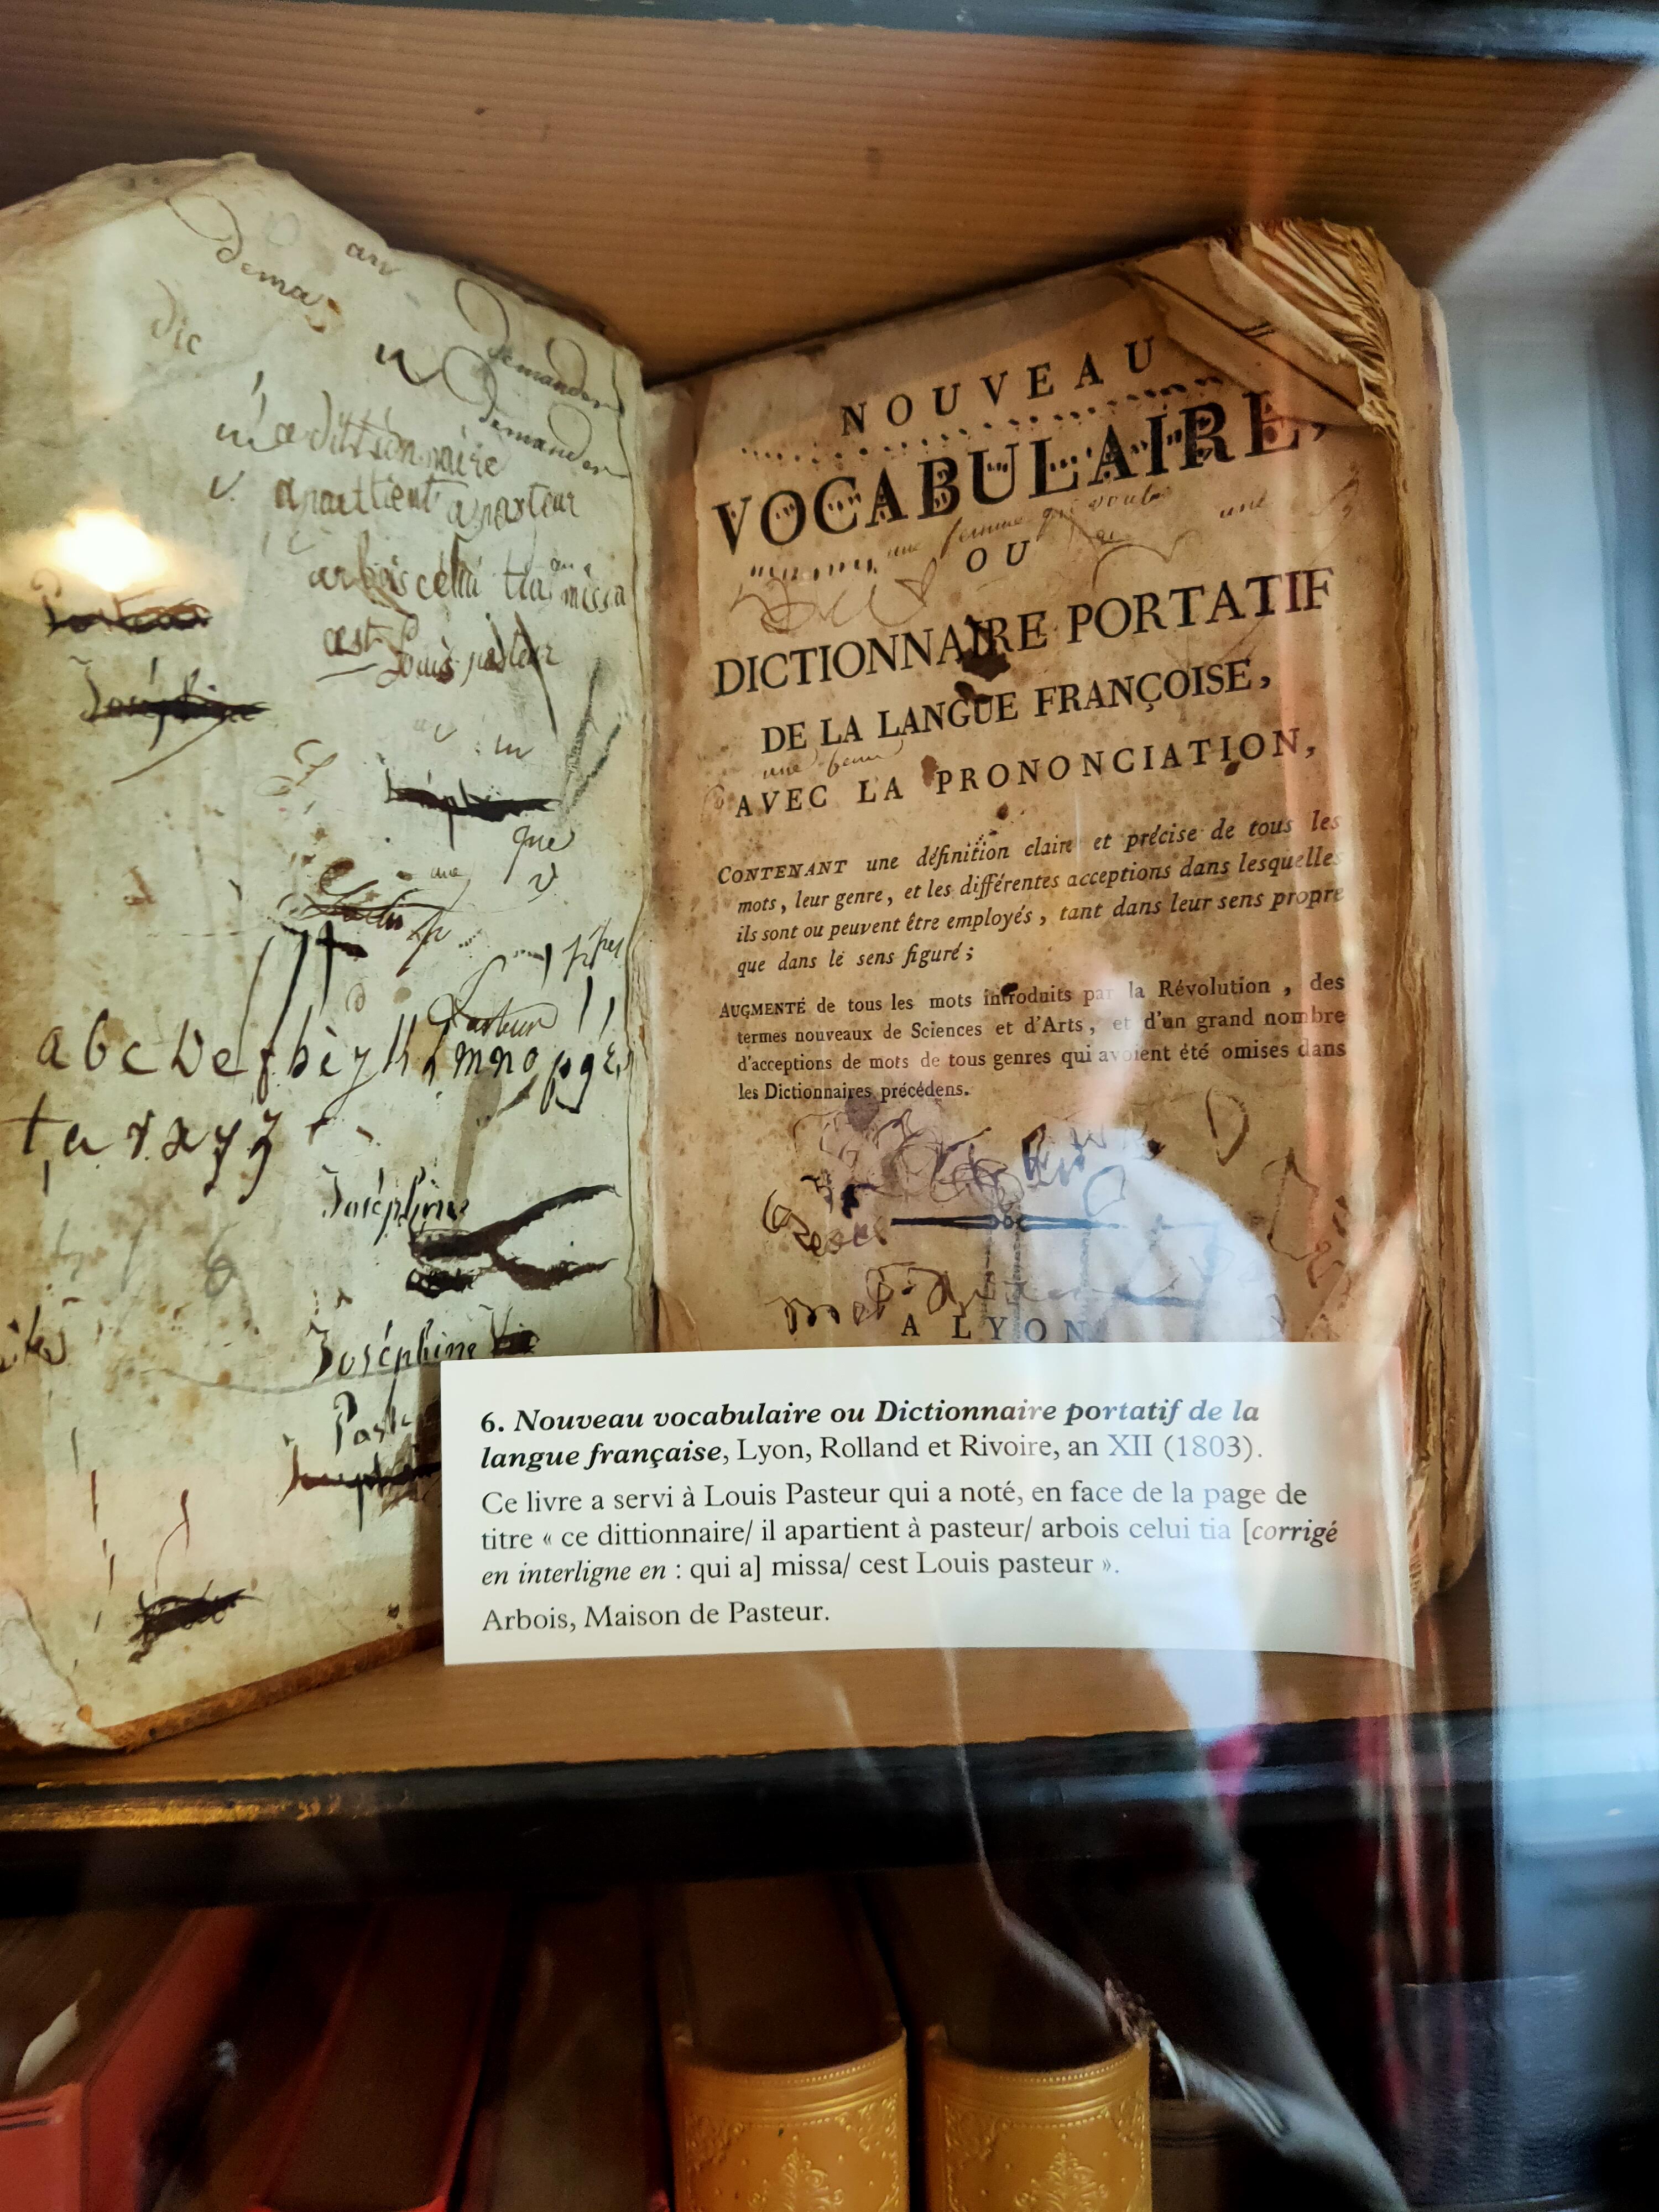 an
dema
dic
Demander
u
demander
ce dittionnaire
v. apartient a pasteur
arbois celui tia missa
cest Louis pasteur
Joséphine
que
v
Pasteur
a b c D e f h i j k l m n o p q r s
t u v x y z
Joséphine
Joséphine
NOUVEAU
VOCABULAIRE,
une femme qui voula une
OU
DICTIONNAIRE PORTATIF
DE LA LANGUE FRANÇOISE,
une fem
AVEC LA PRONONCIATION,
CONTENANT une définition claire et précise de tous les
mots, leur genre, et les différentes acceptions dans lesquelles
ils sont ou peuvent être employés, tant dans leur sens propre
que dans le sens figuré;
AUGMENTÉ de tous les mots introduits par la Révolution, des
termes nouveaux de Sciences et d'Arts, et d'un grand nombre
d'acceptions de mots de tous genres qui avoient été omises dans
les Dictionnaires précédens.
A LYON
6. Nouveau vocabulaire ou Dictionnaire portatif de la
langue française, Lyon, Rolland et Rivoire, an XII (1803).
Ce livre a servi à Louis Pasteur qui a noté, en face de la page de
titre « ce dittionnaire/ il apartient à pasteur/ arbois celui tia [corrigé
en interligne en : qui a] missa/ cest Louis pasteur ».
Arbois, Maison de Pasteur.